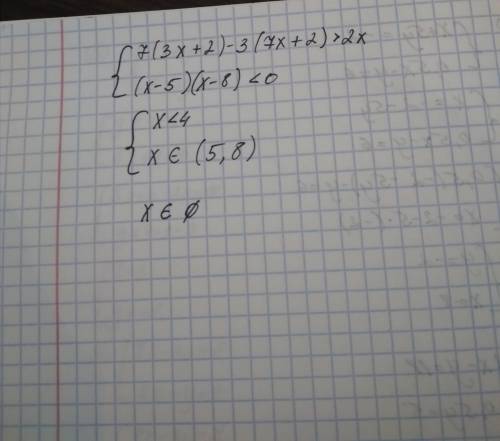 { 7(3x+2)-3(7x+2)>2x
(x-5)(x-8)<0
{ x<4
x ∈ (5,8)
x ∈ ∅